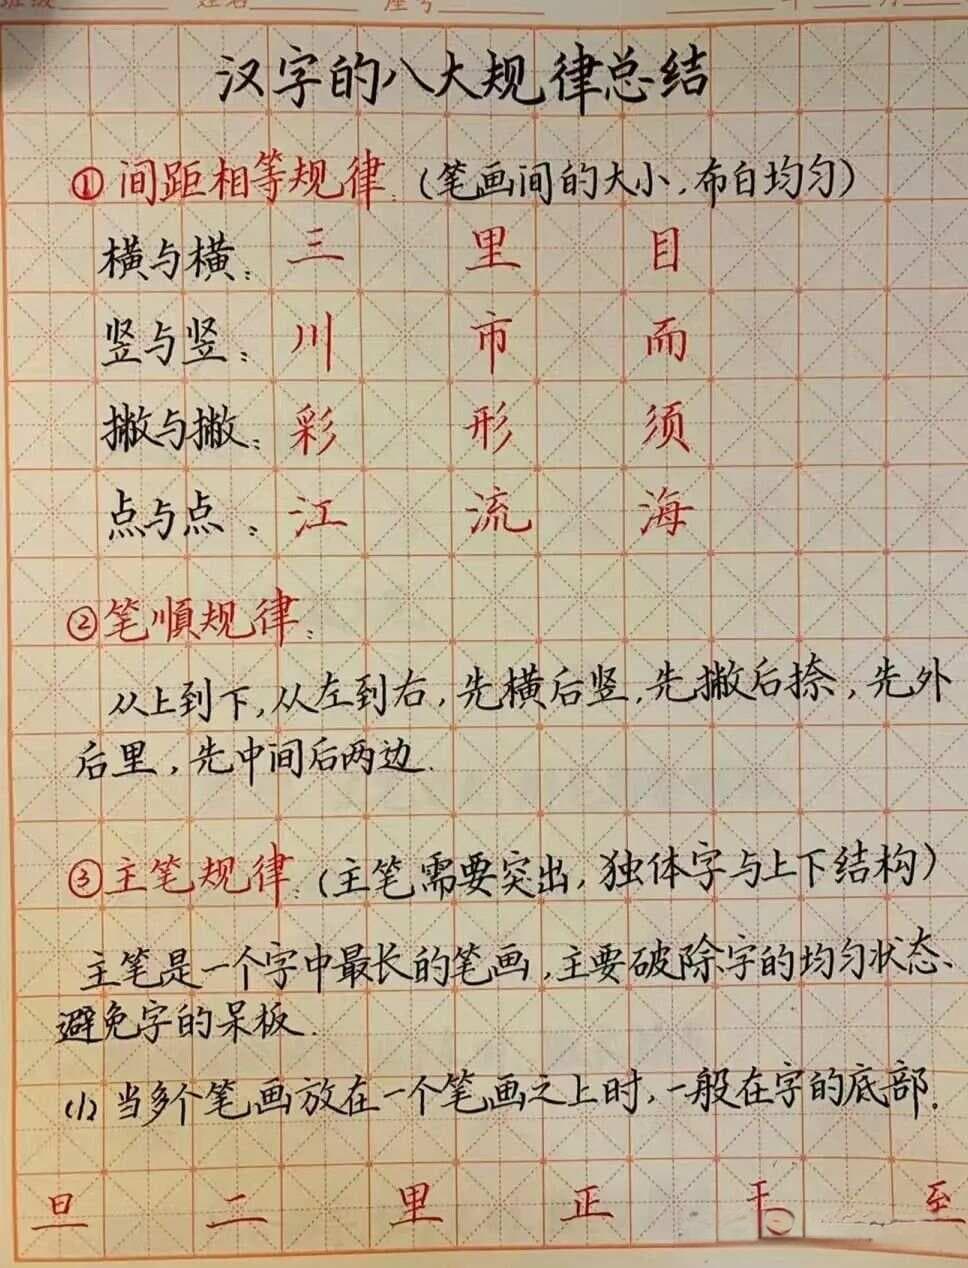 汉字的八大规律总结
①间距相等规律:(笔画间的大小,布白均匀)
横与横: 三 里 目
竖与竖: 川 市 而
撇与撇: 彩 形 须
点与点: 江 流 海
②笔順规律:
从上到下,从左到右,先横后竖,先撇后捺,先外
后里,先中间后两边.
③主笔规律:(主笔需要突出,独体字与上下结构)
主笔是一个字中最长的笔画,主要破除字的均匀状态、
避免字的呆板.
(1)当多个笔画放在一个笔画之上时,一般在字的底部.
旦 二 里 正 干 至